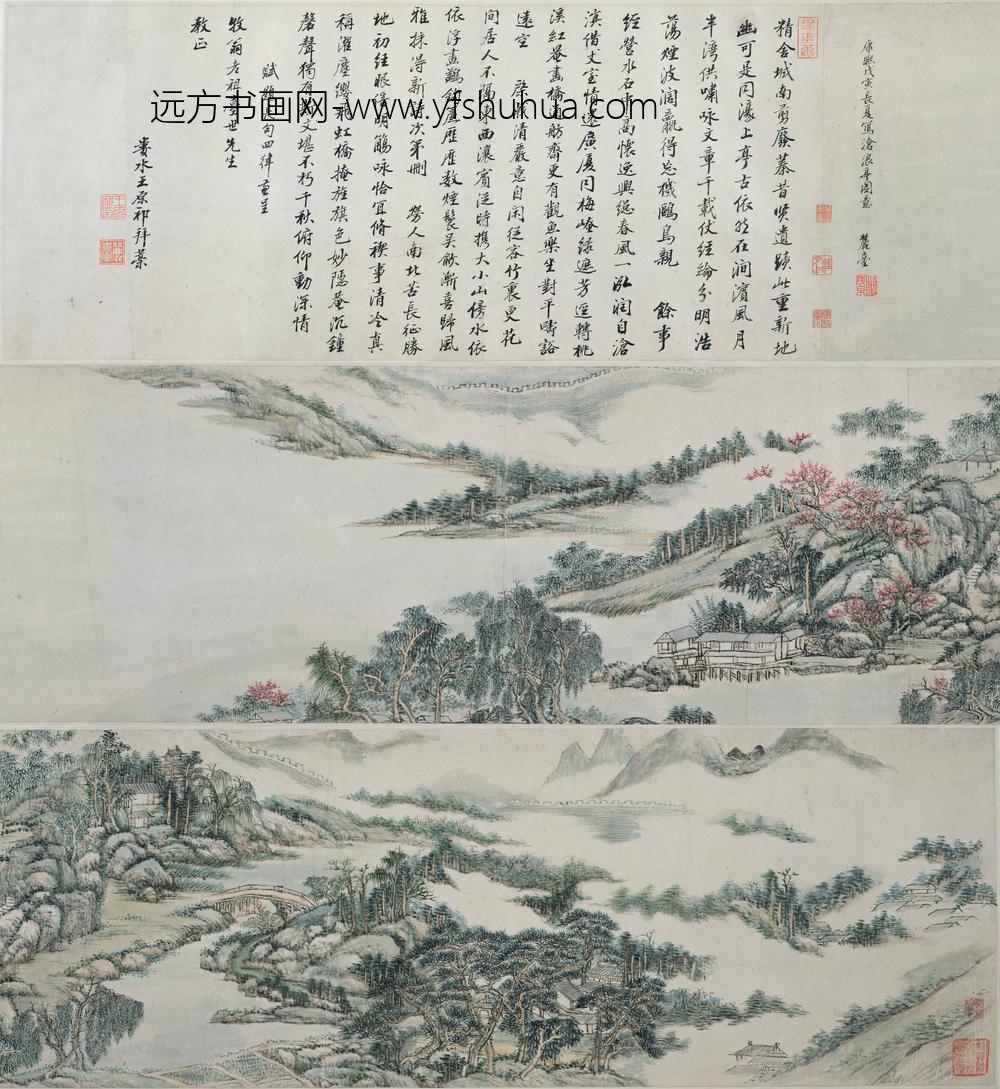 康熙戊寅長夏寫滄浪亭圖意 麓臺
精舍城南剪廢蓁昔賢遺蹟此重新地
幽可是同濠上亭古依然在澗濱風月
半灣供嘯咏文章千載仗經綸分明浩
蕩煙波闊贏得忘機鷗鳥親 餘事
經營水石中高懷逸興總春風一泓潤自滄
溟借丈室情遂廣廈同梅嶝綠遮芳逕轉桃
溪紅卷畫橋通舫齋更有觀魚樂坐對平疇豁
遠空 清嚴意自閑從容竹裏更花
間居人不隔東西瀼賓從時携大小山傍水依
依浮畫鷁 廬歷歷數煙鬟吳歈漸喜歸風
雅採得新詩次第刪 勞人南北苦長征勝
地初經眼倍明觴咏恰宜脩禊事清泠真
稱濯塵纓飛虹橋掩旌旗色妙隱菴沉鐘
磬聲獨有斯文堪不朽千秋俯仰動深情
賦 句四律重呈
牧翁老祖臺世先生
教正
婁水王原祁拜藁
远方书画网 www.yfshuhua.com